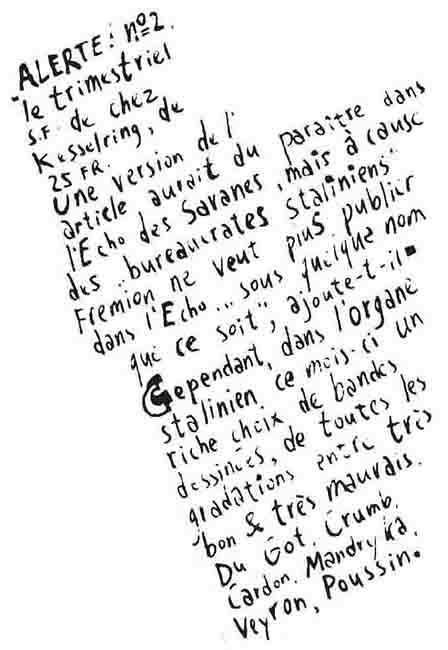 ALERTE! nº2.
"le trimestriel
S.F. de chez
Kesselring, de
25 FR.
Une version de l'
article aurait du paraître dans
l'Echo des Savanes, mais à cause
des "bureaucrates staliniens"
Fremion ne veut plus publier
dans l'Echo... sous quelque nom
que ce soit", ajoute-t-il.
Cependant, dans l'organe
stalinien ce mois-ci un
riche choix de bandes
dessinées, de toutes les
gradations entre très
bon & très mauvais.
Du Got, Crumb,
Cardon, Mandryka,
Veyron, Poussin.